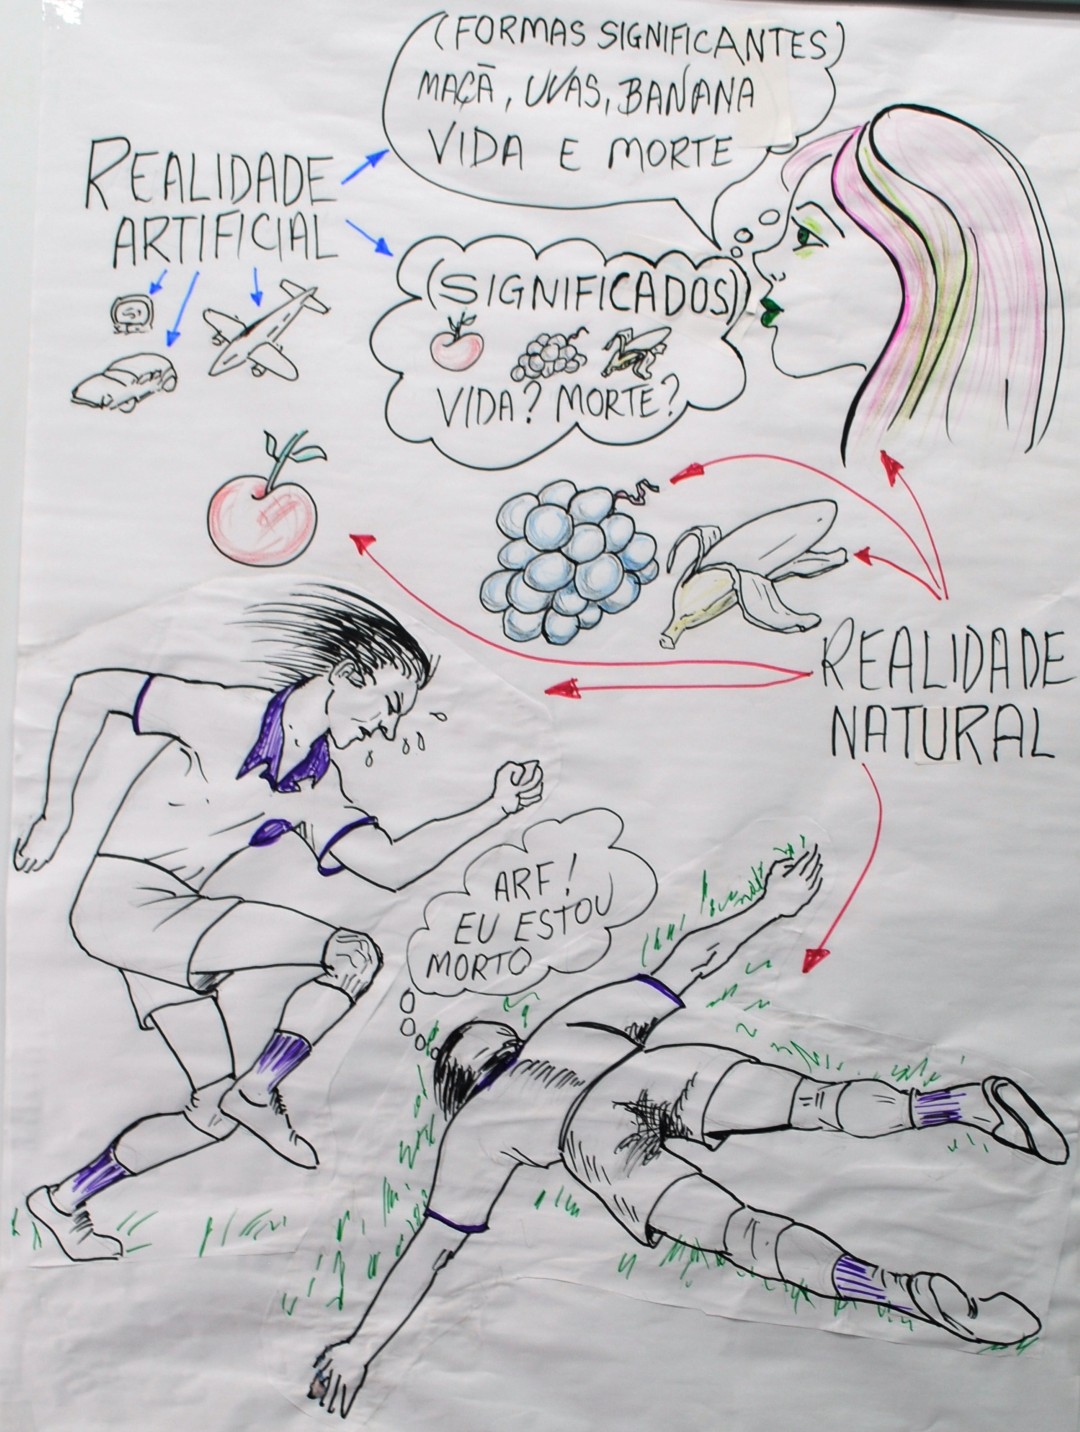 (FORMAS SIGNIFICANTES)
MAÇÃ, UVAS, BANANA
VIDA E MORTE
REALIDADE
ARTIFICIAL
(SIGNIFICADOS)
VIDA? MORTE?
REALIDADE
NATURAL
ARF!
EU ESTOU
MORTO